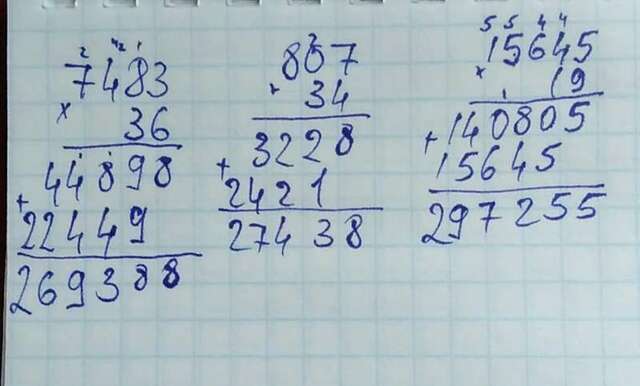 2 42 1
7483
×
36
44898
+
22449
269388
2
807
×
34
3228
+
2421
27438
5 5 4 4
15645
×
19
1
140805
+
15645
297255